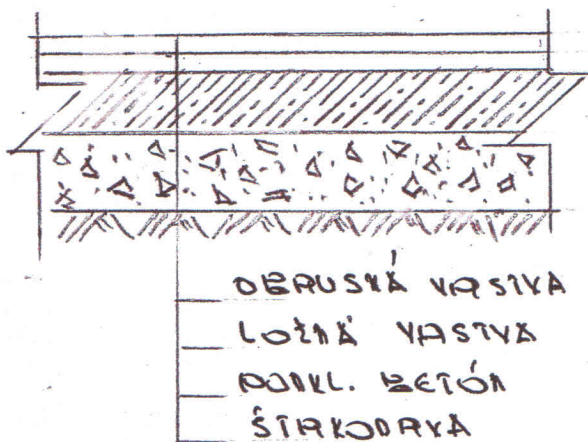 OBRUSNÁ VRSTVA
LOŽNÁ VRSTVA
PODKL. BETÓN
ŠTRKODRVA